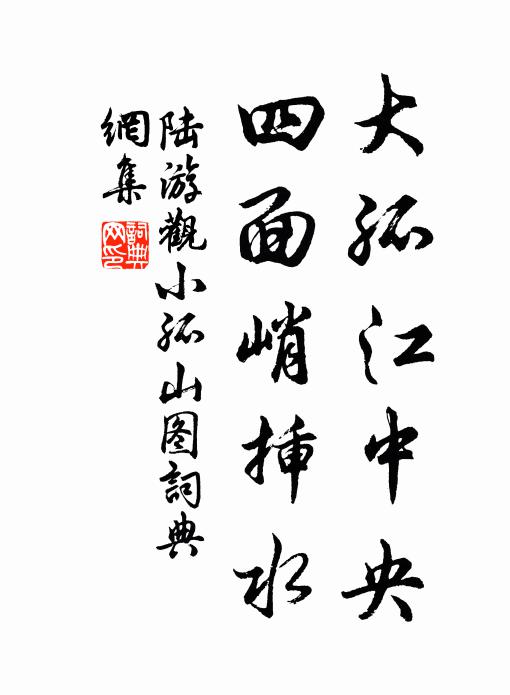 大孤江中央
四面峭插水
陆游觀小孤山图詞典
網集
詞典
网印